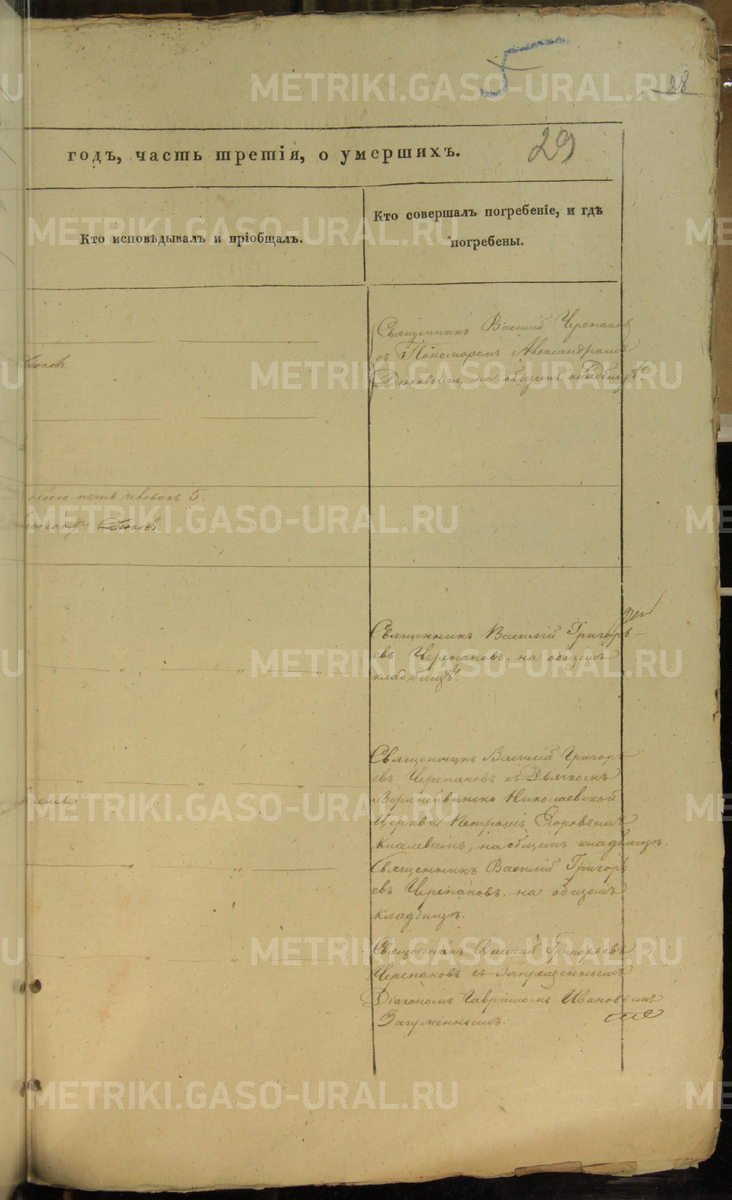 28
29
годъ, часть третія, о умершихъ.
Кто исповѣдывалъ и пріобщалъ.
Кто совершалъ погребеніе, и гдѣ
погребены.
Священникъ Василій Черепановъ
съ Пономаремъ Александромъ
на общемъ кладбищѣ.
обоего пять человѣкъ 5.
Священникъ Василій Григорь-
евъ Черепановъ, на общемъ
кладбищѣ.
Священникъ Василій Григорь-
евъ Черепановъ съ Дьячкомъ
Николаевской
Церкви Петромъ Егоровымъ
на общемъ кладбищѣ.
Священникъ Василій Григорь-
евъ Черепановъ, на общемъ
кладбищѣ.
Священникъ Василій Григорьевъ
Черепановъ съ запрещеннымъ
Діакономъ Гавріиломъ Ивановымъ
Загуменнымъ.
METRIKI.GASO-URAL.RU